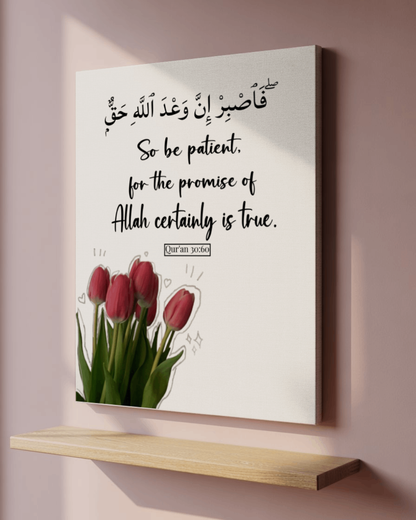 فَٱصْبِرْ إِنَّ وَعْدَ ٱللَّهِ حَقٌّ ۖ
So be patient,
for the promise of
Allah certainly is true.
Qur'an 30:60